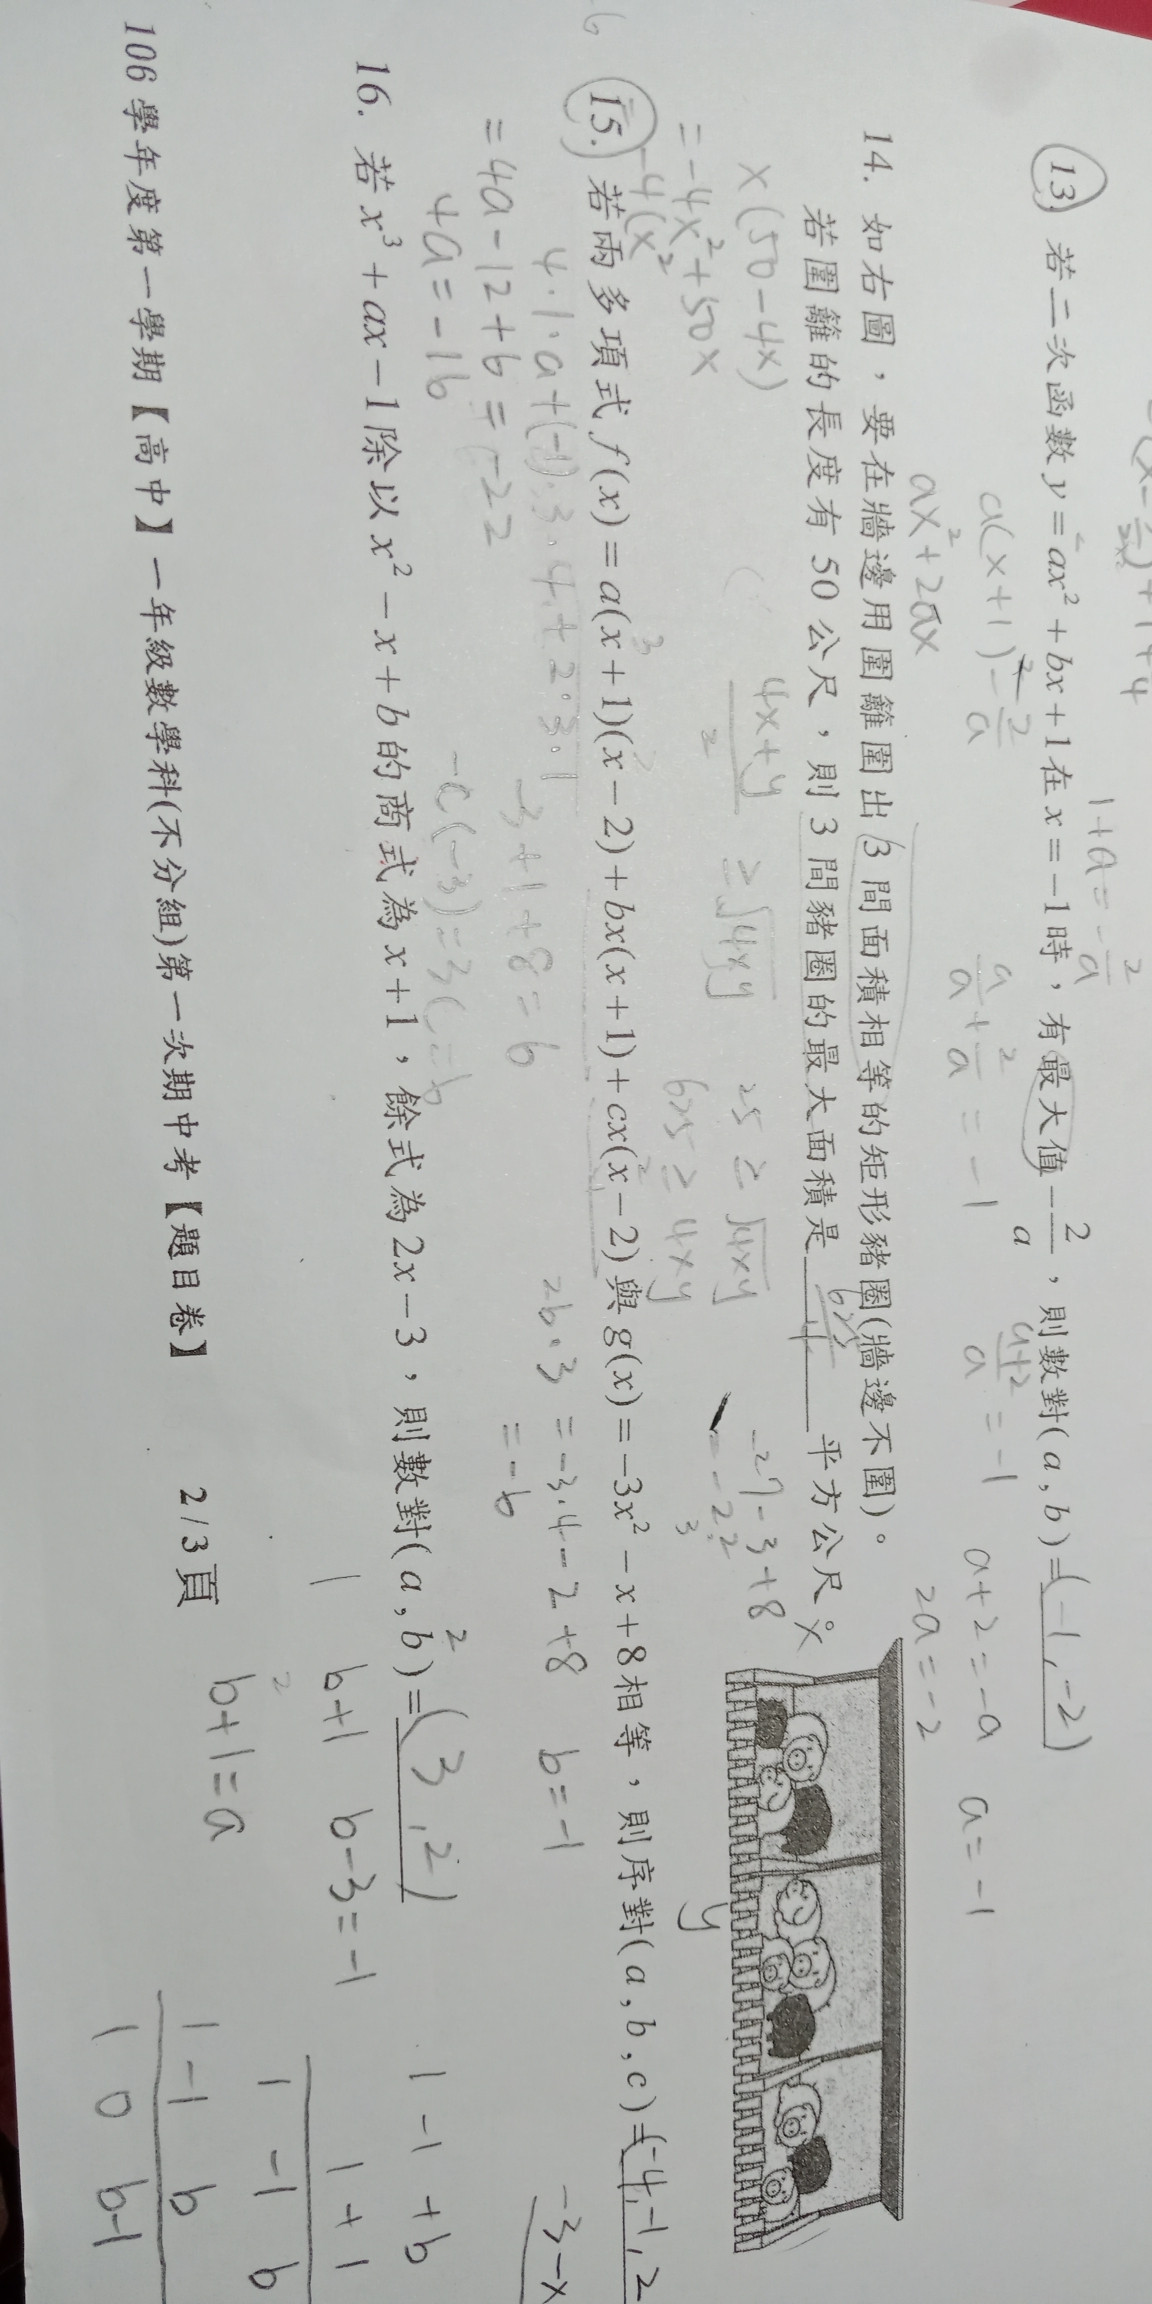 1+a=-2/a
a(x+1)²-2/a
a/a+2/a=-1
(a+2)/a=-1
a+2=-a
a=-1
13. 若二次函數y=ax²+bx+1在x=-1時，有最大值-2/a，則數對(a,b)=(-1,-2)
ax²+2ax
2a=-2
14. 如右圖，要在牆邊用圍籬圍出3間面積相等的矩形豬圈(牆邊不圍)。
若圍籬的長度有50公尺，則3間豬圈的最大面積是____平方公尺。
x
x(50-4x)
(4x+y)/2 ≥√4xy
25≥√4xy
-27-3+8
=-4x²+50x
625≥4xy
=-22
y
-4(x²
15. 若兩多項式f(x)=a(x+1)(x-2)+bx(x+1)+cx(x-2)與g(x)=-3x²-x+8相等，則序對(a,b,c)=(-4,-1,2
4·1·a+(-1)·3·4+2·3·1
2b·3=-3·4-2+8
b=-1
-3-x
=4a-12+6=-22
-3+1+8=6
=-6
4a=-16
-c(-3)=3c=6
16. 若x³+ax-1除以x²-x+b的商式為x+1，餘式為2x-3，則數對(a,b)=(3,2)
1 -1 +b
1 +1
1 b+1 b-3=-1
1 -1 b
2
b+1=a
1 -1 b
1 0 b-1
106學年度第一學期【高中】一年級數學科(不分組)第一次期中考【題目卷】 2/3頁